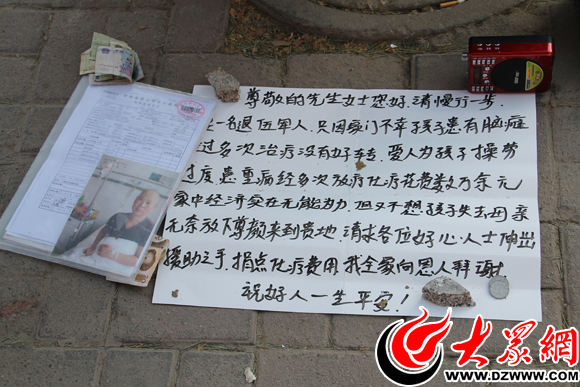 尊敬的先生女士您好,请慢行一步.
一名退伍军人.只因家门不幸孩子患有脑瘫
过多次治疗没有好转.爱人为孩子操劳
过度患重病经多次放疗化疗花费数万余元
家中经济实在无能为力.但又不想孩子失去母亲
无奈放下尊颜来到贵地.请求各位好心人士伸出
援助之手.捐点化疗费用我全家向恩人拜谢.
祝好人一生平安!
大眾網
WWW.DZWWW.COM